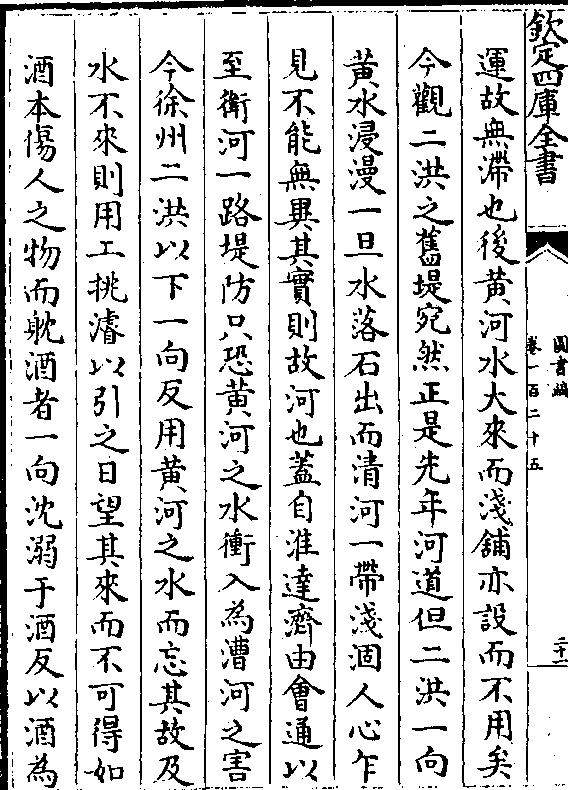 欽定四庫全書
圖書編
卷一百二十五
二十一
運故無滯也後黄河水大來而淺舖亦設而不用矣
今觀二洪之舊堤宛然正是先年河道但二洪一向
黄水浸漫一旦水落石出而清河一帶淺涸人心乍
見不能無異其實則故河也蓋自淮達濟由會通以
至衛河一路堤防只恐黄河之水衝入為漕河之害
今徐州二洪以下一向反用黄河之水而忘其故及
水不來則用工挑濬以引之日望其來而不可得如
酒本傷人之物而躭酒者一向沈溺于酒反以酒為